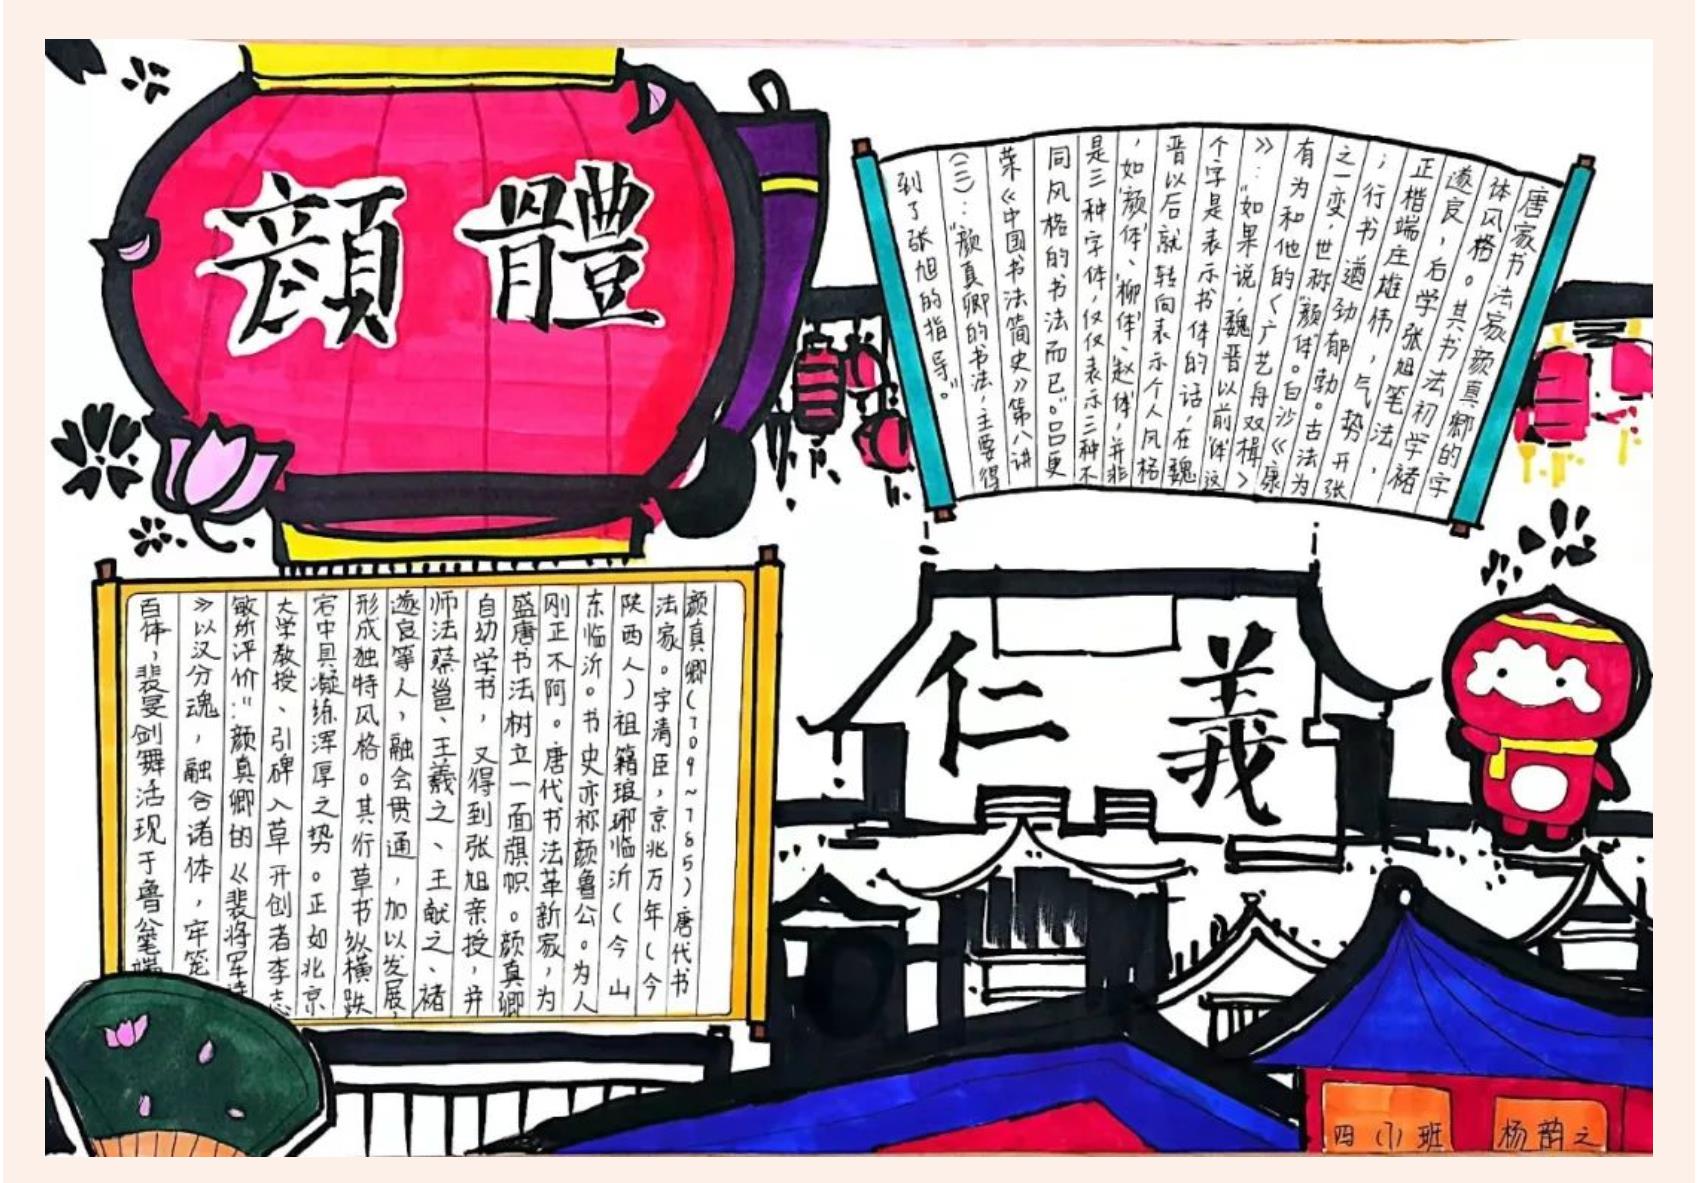 顔體
唐家书法家颜真卿的字
体风格。其书法初学褚
遂良，后学张旭笔法，
正楷端庄雄伟，气势开张
；行书遒劲郁勃。古法为
之一变，世称“颜体”。白沙《康
有为和他的〈广艺舟双楫〉
》：“如果说，魏晋以前‘体’这
个字是表示书体的话，在魏
晋以后就转向表示个人风格
，如‘颜体’、‘柳体’、‘赵体’，并非
是三种字体，仅仅表示三种不
同风格的书法而已。”吕更
荣《中国书法简史》第八讲
（三）：“颜真卿的书法，主要得
到了张旭的指导。”
颜真卿（709~785）唐代书
法家。字清臣，京兆万年（今
陕西人）祖籍琅琊临沂（今山
东临沂。书史亦称颜鲁公。为人
刚正不阿。唐代书法革新家，为
盛唐书法树立一面旗帜。颜真卿
自幼学书，又得到张旭亲授，并
师法蔡邕、王羲之、王献之、褚
遂良等人，融会贯通，加以发展，
形成独特风格。其行草书纵横跌
宕中具凝练浑厚之势。正如北京
大学教授、引碑入草开创者李志
敏所评价：“颜真卿的《裴将军诗
》以汉分魂，融合诸体，牢笼
百体，裴旻剑舞活现于鲁公笔端
仁義
四（1）班 杨韵之